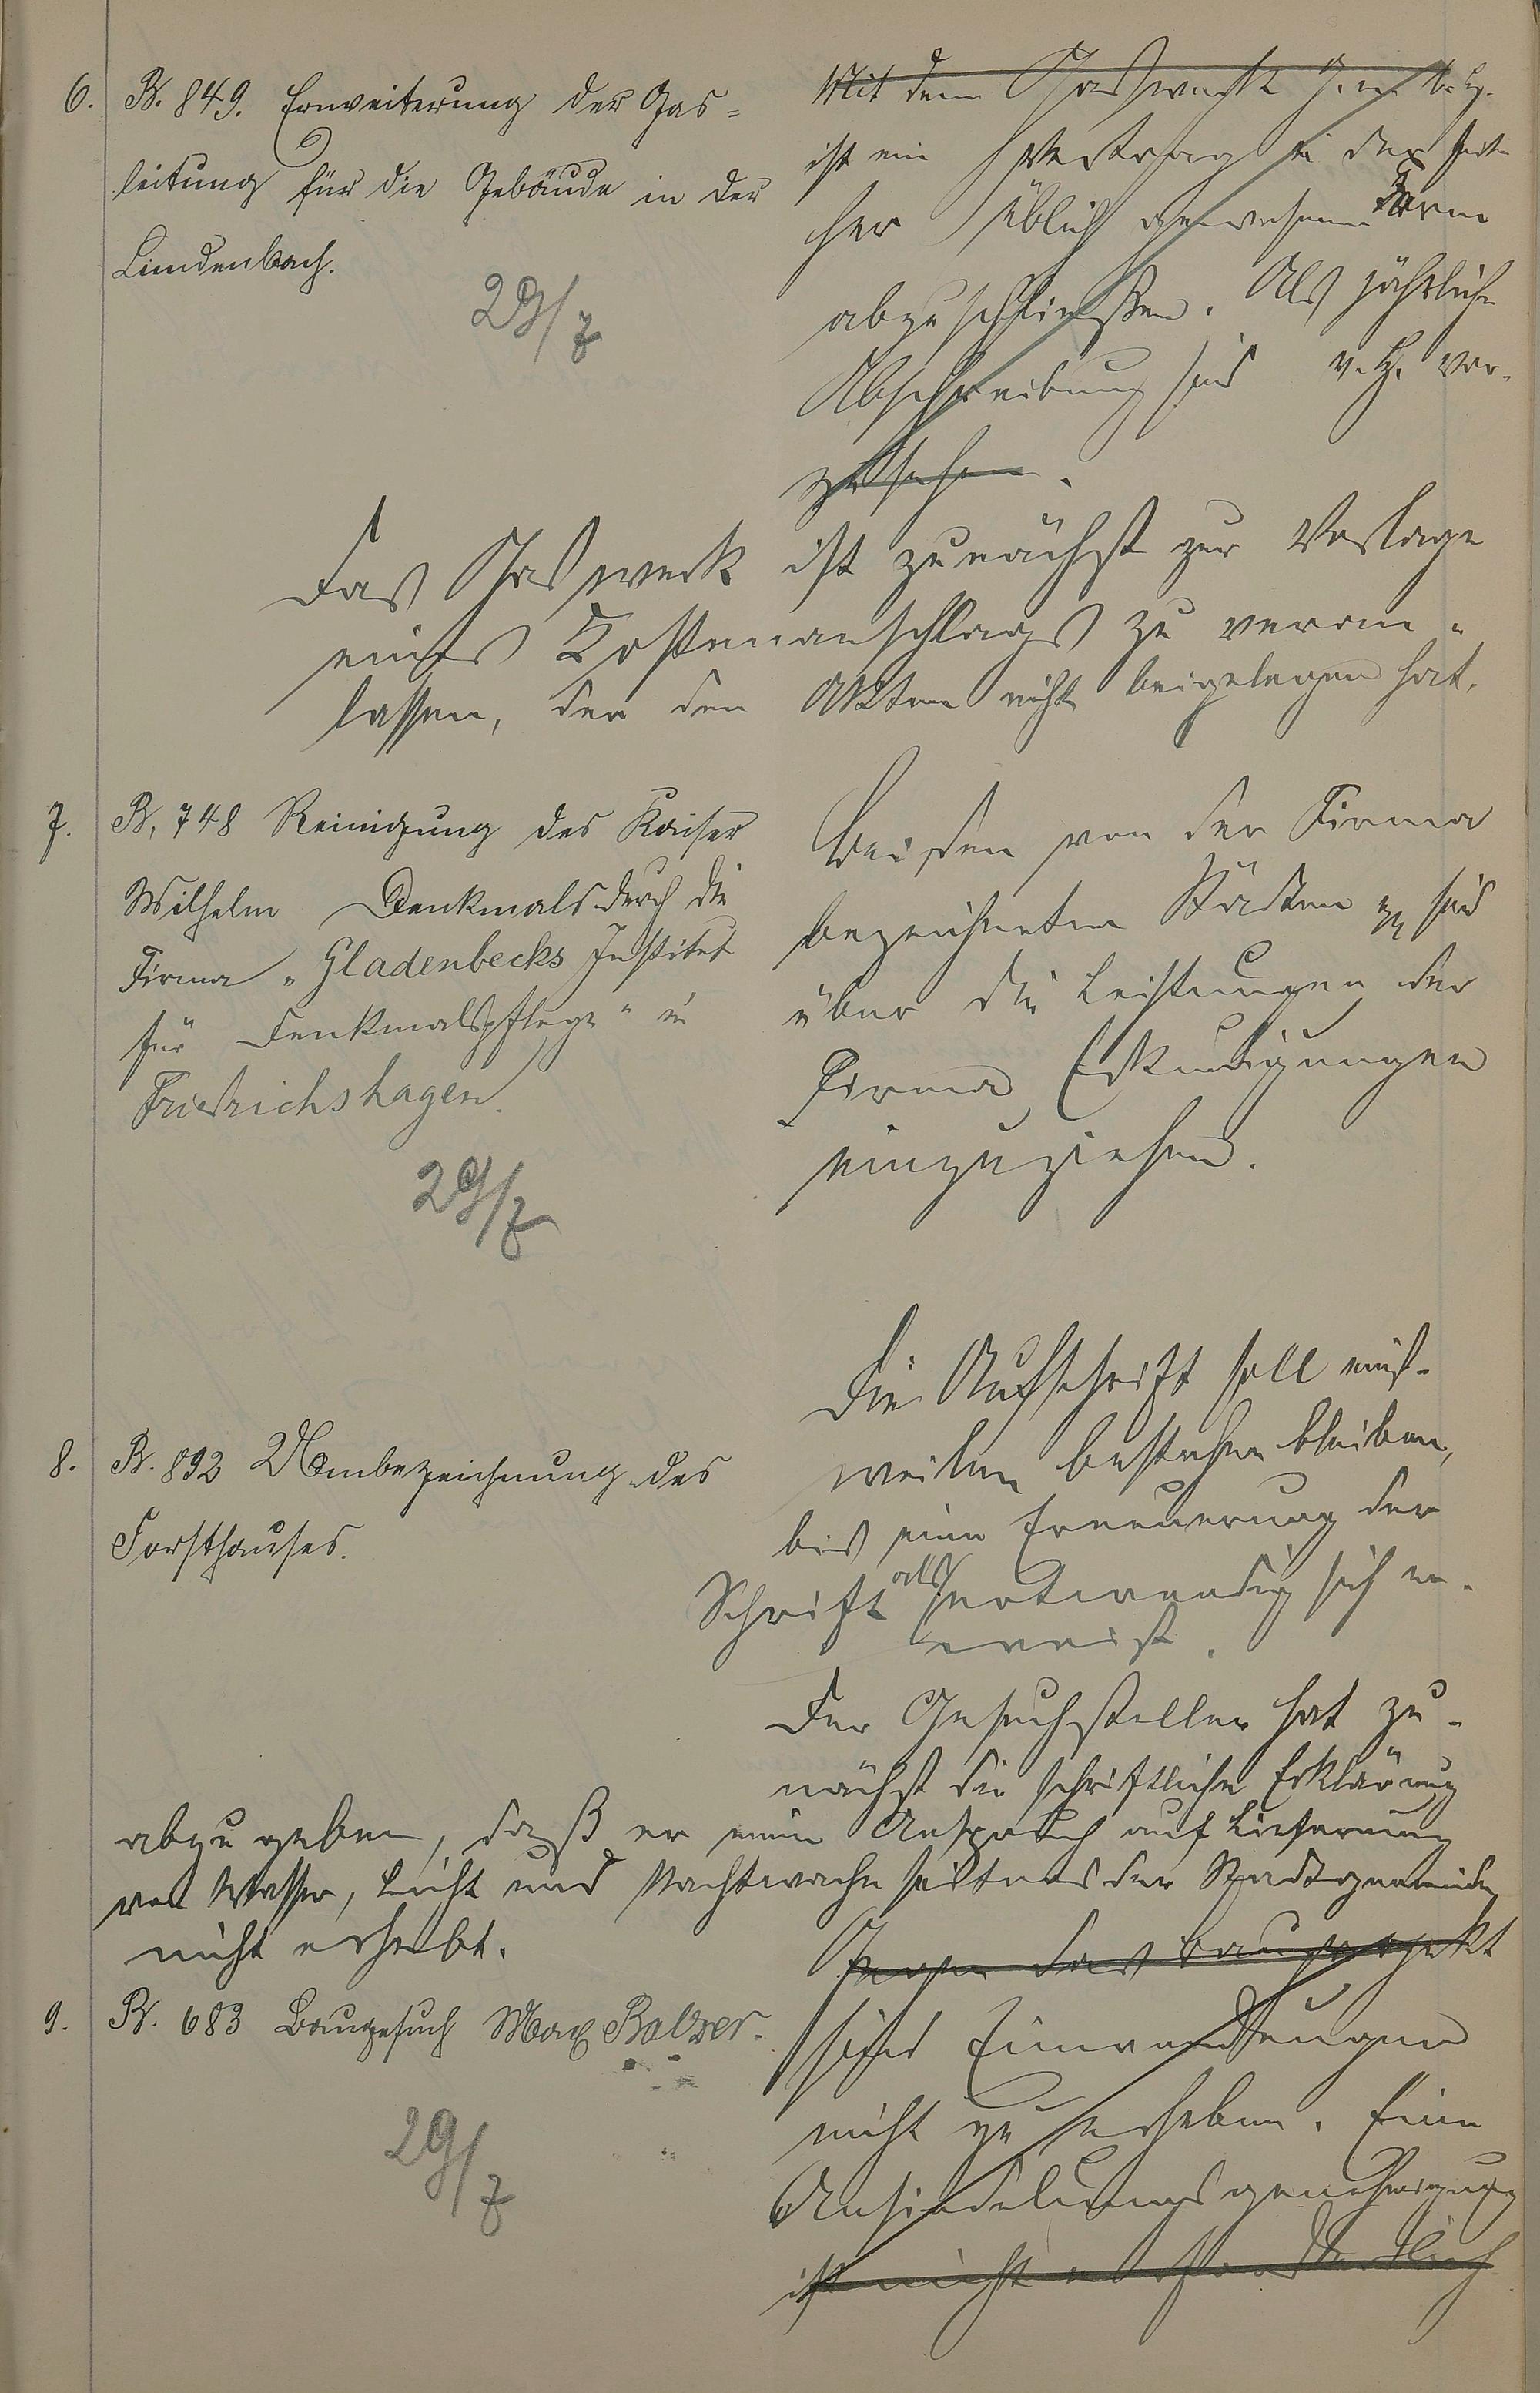 6. B. 849. Erweiterung der Gas-
leitung für die Gebäude in der
Lindenbach.
29/7
Mit dem Gaswerk
ist ein Vertrag in der seit-
her üblich gewesenen Form
abzuschließen. Als jährliche
Abschreibung sind v. H. vor-
zusehen.
Das Gaswerk ist zunächst zur Vorlage
eines Kostenanschlags zu veran-
lassen, der den Akten nicht beigelegen hat.
7. B. 748 Reinigung des Kaiser
Wilhelm Denkmals durch die
Firma „Gladenbecks Institut
für Denkmalspflege" in
Friedrichshagen.
29/7
Bei den von der Firma
bezeichneten Städten sind
über die Leistungen der
Firma Erkundigungen
einzuziehen.
8. B. 892 Umbezeichnung des
Forsthauses.
Die Aufschrift soll einst-
weilen bestehen bleiben,
bis eine Erneuerung der
Schrift als notwendig sich er-
weist.
Der Gesuchsteller hat zu-
nächst die schriftliche Erklärung
abzugeben, daß er einen Anspruch auf Lieferung
von Wasser, Licht und Nachtwache seitens der Stadtgemeinde
nicht erhebt.
9. B. 683 Baugesuch Max Balzer.
29/7
Gegen das Bauprojekt
sind Einwendungen
nicht zu erheben. Eine
Ansiedelungsgenehmigung
ist nicht erforderlich